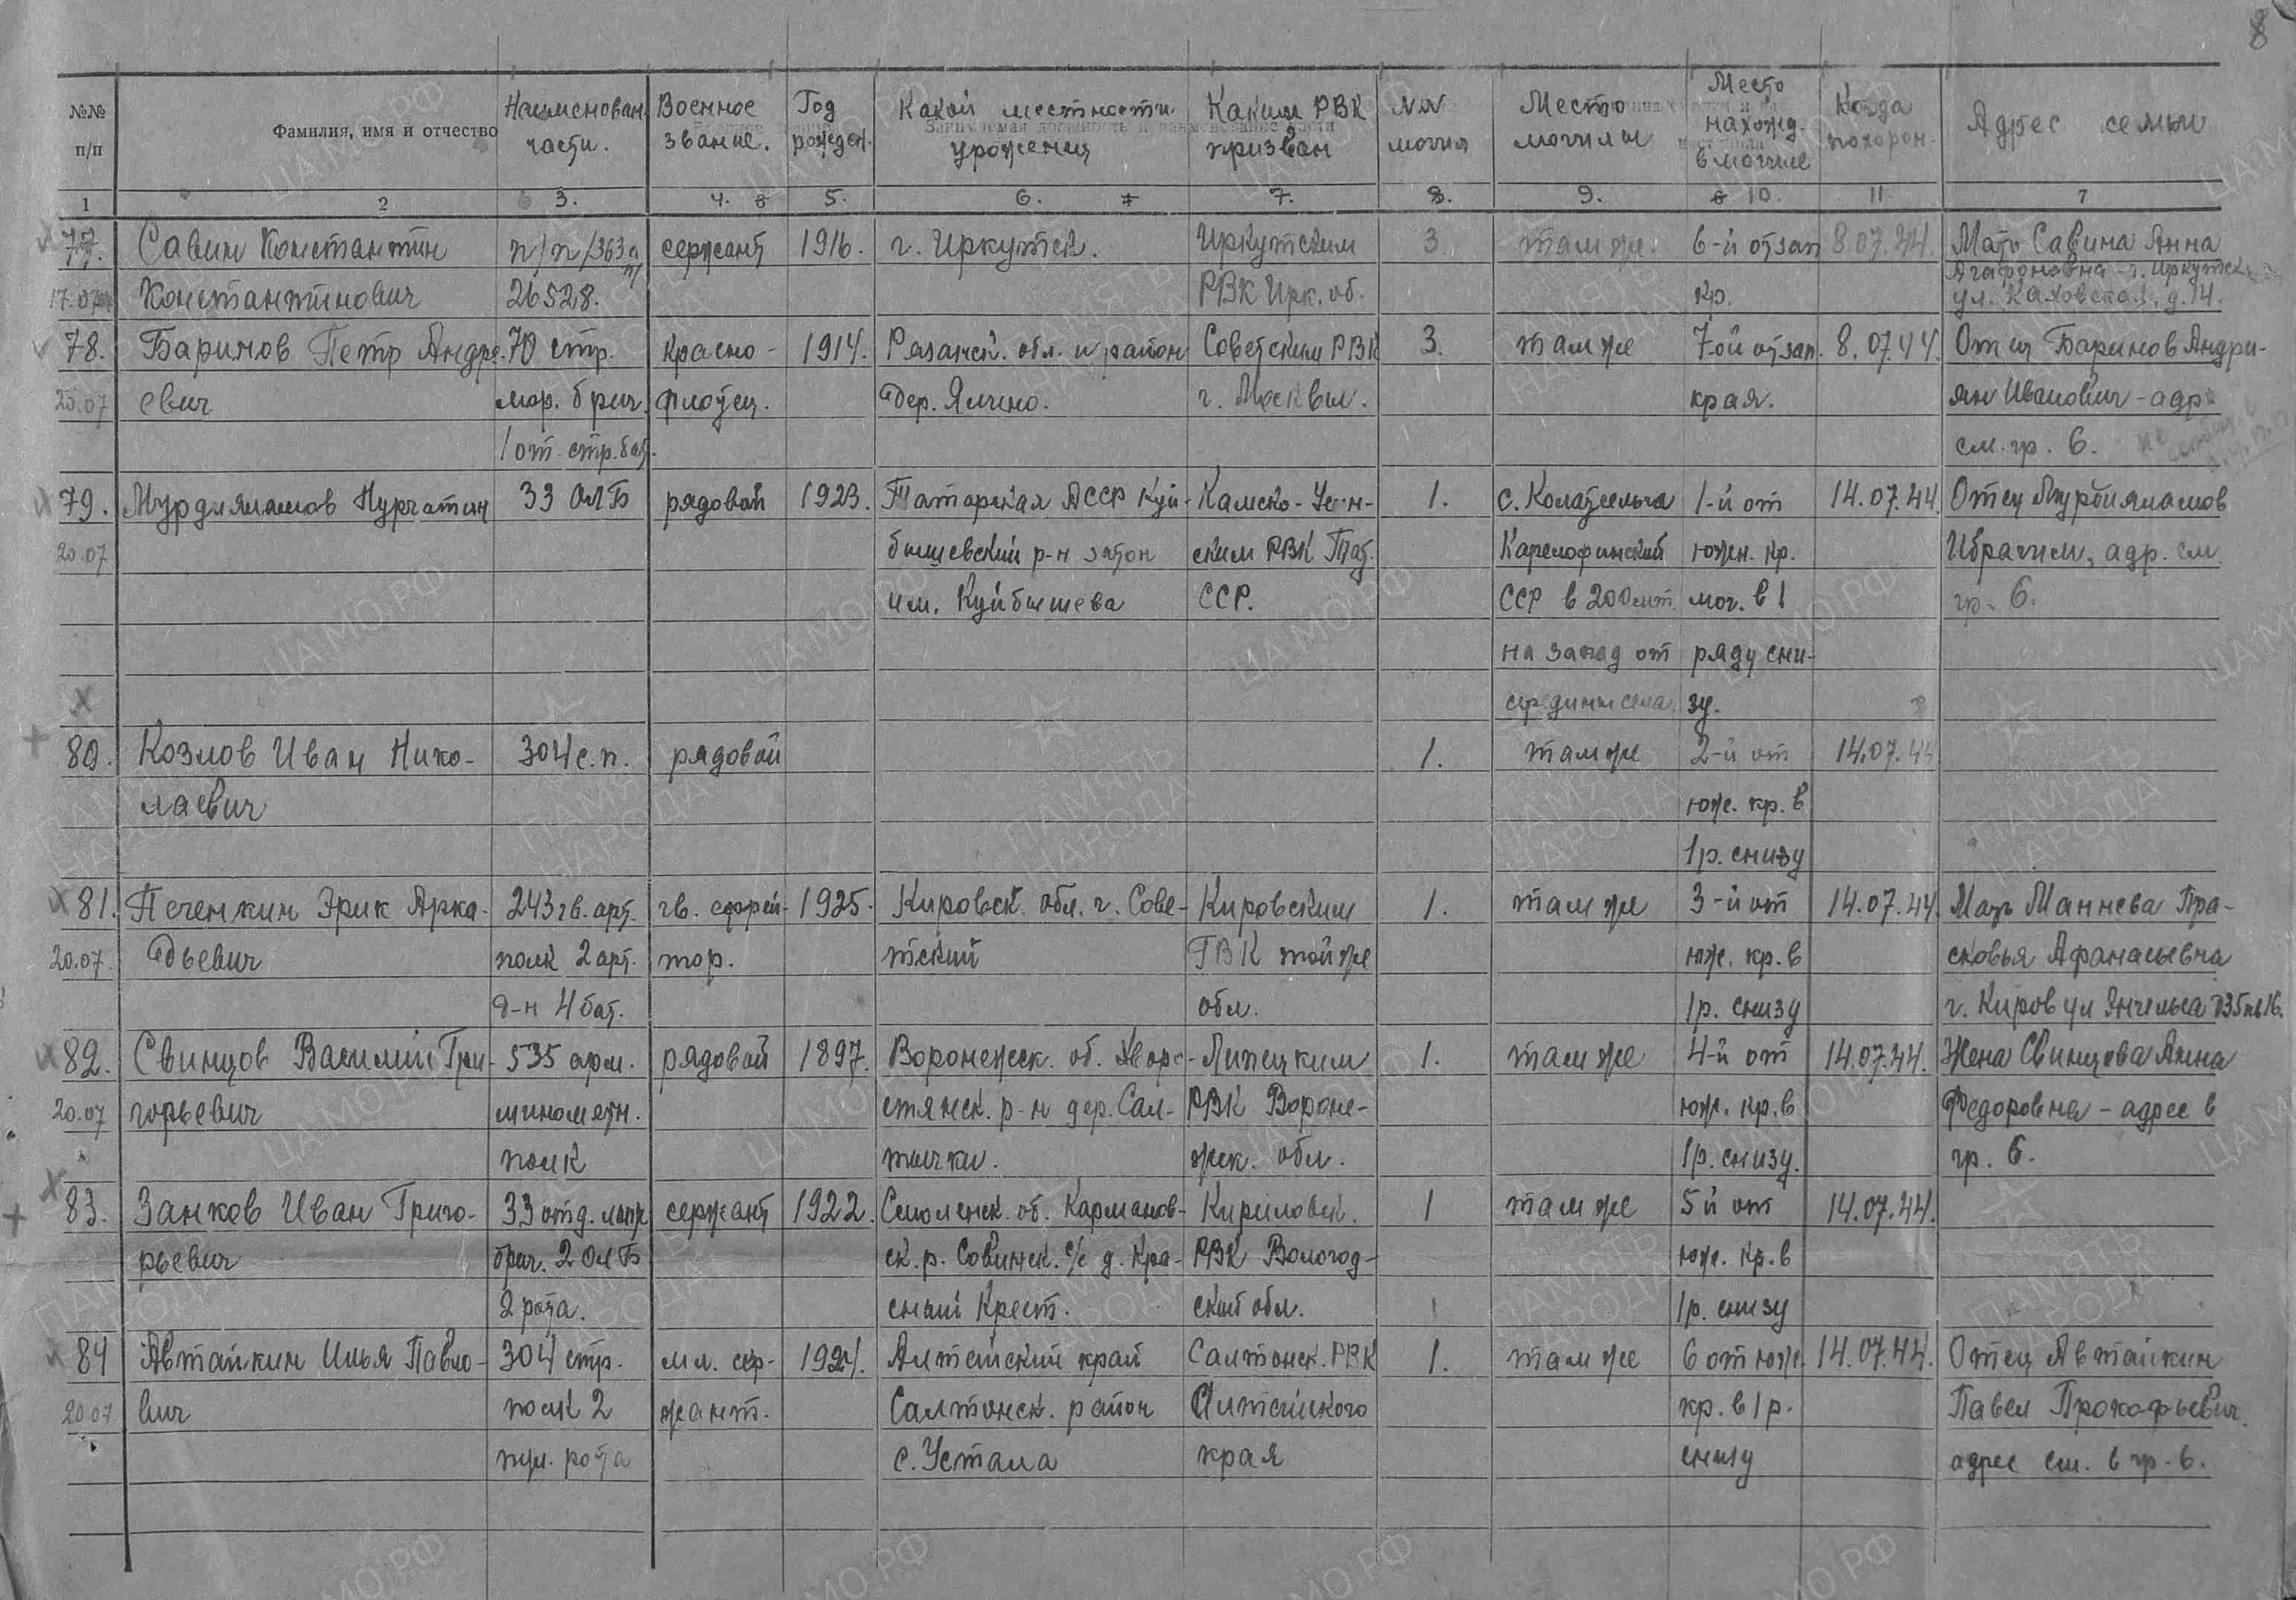 8
№№ п/п
Фамилия, имя и отчество
Наименован. части.
Военное звание.
Год рожден.
Какой местности уроженец
Каким РВК призван
NN могил
Место могилы
Место нахожд. в могиле
Когда похорон.
Адрес семьи
1 2 3. 4. 5. 6. 7. 8. 9. 10. 11 7
77. Савин Константин п/п/363 сержант 1916. г. Иркутск. Иркутским 3 там же. 6-й от зап 8.07.44. Мать Савина Анна
Агафоновна - г. Иркутск
17.07 Константинович 26528. РВК Ирк. об. кр. ул. Каховская, д. 14.
78. Баринов Петр Андре- 70 стр. красно- 1914. Рязанск. обл. и район Советским РВК 3. там же 7-ой от зап. 8.07.44. Отец Баринов Андри-
25.07 евич мор. бриг. флотец. дер. Ялино. г. Москвы. края. ян Иванович - адр.
1 от. стр. бат. см. гр. 6.
79. Мурдиямалов Нургатин 33 ОЛБ рядовой 1923. Татарская АССР Куй- Камско-Устин- 1. с. Колатсельга 1-й от 14.07.44. Отец
20.07 бышевский р-н затон ским РВК Тат. Карелофинский южн. кр. Ибрагим, адр. см.
им. Куйбышева ССР. ССР в 200 мт. мог. в 1 гр. 6.
на запад от ряду сни-
середины села. зу.
80. Козлов Иван Нико- 304 с.п. рядовой 1. там же 2-й от 14.07.44
лаевич юж. кр. в
1 р. снизу
81. Печенкин Эрик Арка- 243 гв. арт. гв. ефрей- 1925. Кировск. обл. г. Сове- Кировским 1. там же 3-й от 14.07.44. Мать Маннева Пра-
20.07 дьевич полк 2 арт. тор. тский ГВК той же юж. кр. в сковья Афанасьевна
д-н 4 бат. обл. 1 р. снизу г. Киров ул Энгельса д35 кв16.
82. Свинцов Василий Гри- 535 арм. рядовой 1897. Воронежск. об. Хворо- Липецким 1. там же 4-й от 14.07.44. Жена Свинцова Анна
20.07 горьевич миномётн. стянск. р-н дер. Сал- РВК Вороне- юж. кр. в Федоровна - адрес в
полк тычки. жск. обл. 1 р. снизу. гр. 6.
83. Занков Иван Григо- 33 отд. лыж сержант 1922. Смоленск. об. Карманов- Кириловск. 1 там же 5 й от 14.07.44.
рьевич бриг. 2 ОЛБ ск. р. Совинск. с/с д. Кра- РВК Вологод- юж. кр. в
2 рота. сный Крест. ской обл. 1 р. снизу
84 Автайкин Илья Павло- 304 стр. мл. сер- 1924. Алтайский край Салтонск. РВК 1. там же 6 от юж. 14.07.44. Отец Автайкин
20.07 вич полк 2 жант. Салтонск. район Алтайского кр. в 1 р. Павел Прокофьевич.
пул. рота с. Устала края снизу адрес см. в гр. 6.
ЦАМО.РФ
ПАМЯТЬ НАРОДА